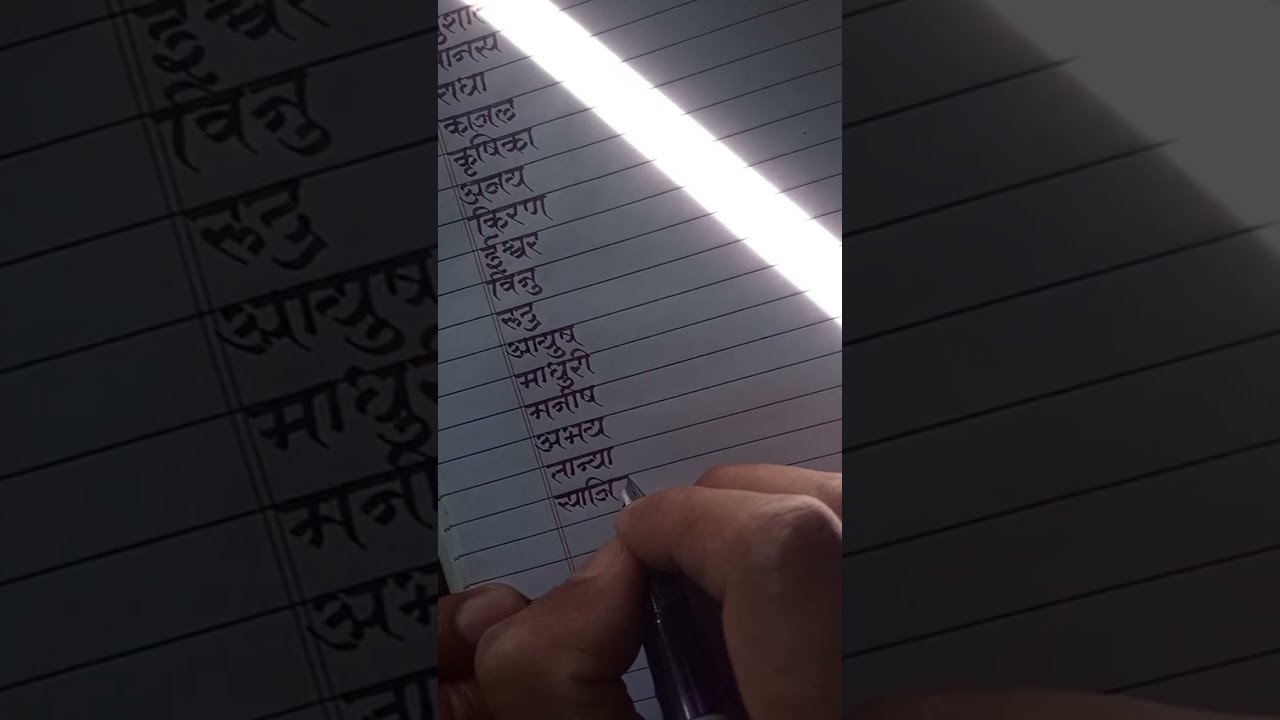 राधा
काजल
कृषिका
अनय
किरण
ईश्वर
विनु
आयुष
माधुरी
मनीष
अभय
तान्या